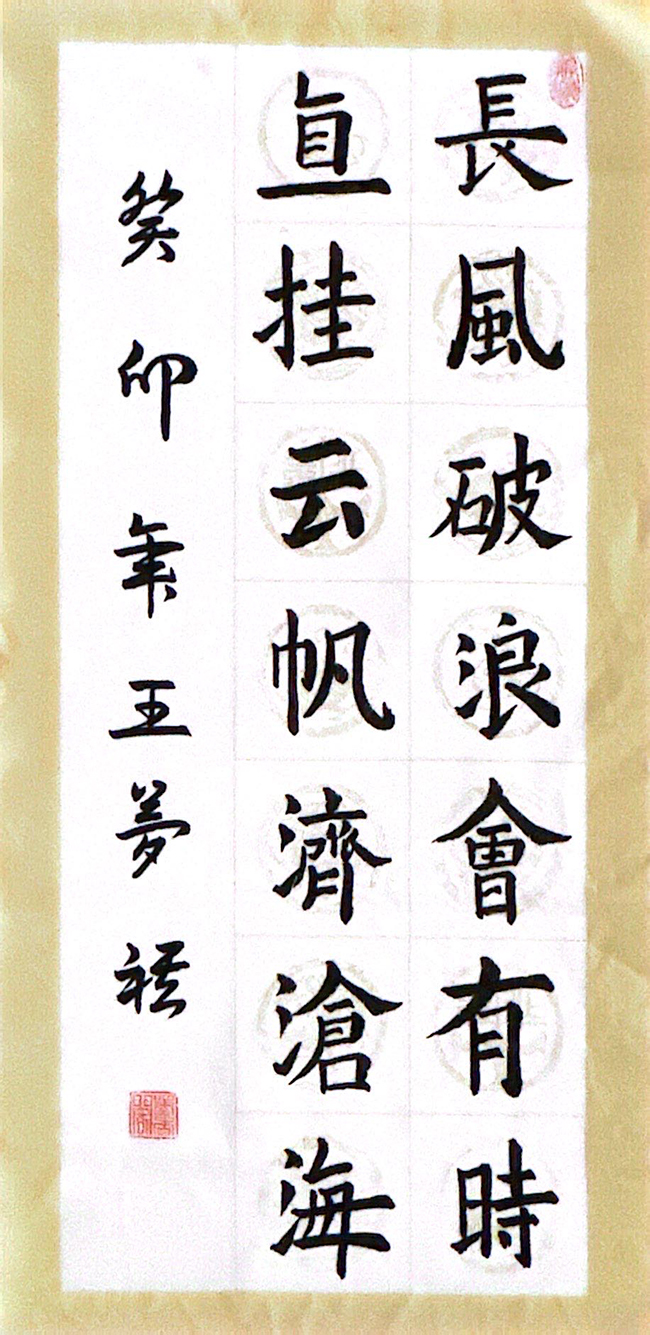 長風破浪會有時
直挂云帆濟滄海
癸卯年王夢禧